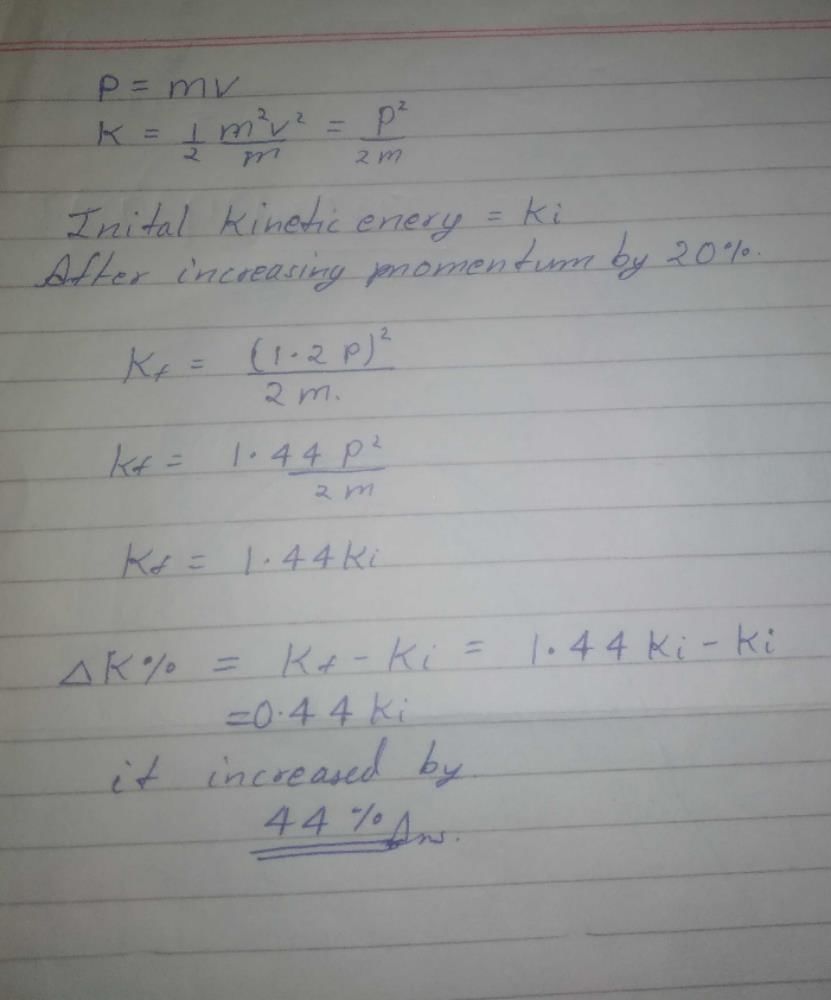 P = mv
K = 1/2 m²v²/m = P²/2m
Inital kinetic enery = Ki
After increasing momentum by 20%.
Kf = (1.2 P)²/2m.
Kf = 1.44 P²/2m
Kf = 1.44 Ki
ΔK% = Kf - Ki = 1.44 Ki - Ki
= 0.44 Ki
it increased by
44% Ans.